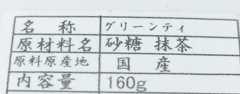 名 称 グリーンティ
原材料名 砂糖 抹茶
原料原産地 国 産
内容量 160g